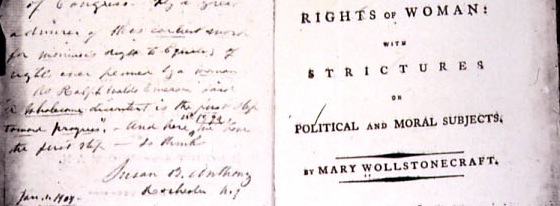 of Congress. by a great
admirer of this earliest word
for woman's right to Equality of
rights ever penned by a woman
As Ralph Waldo Emerson said
"A Wholesome discontent is the first step
toward progress". - And here, in 1792, we have
the first step - So thinks
Susan B. Anthony
Rochester N.Y.
Jan. 1. 1904.
RIGHTS OF WOMAN:
WITH
STRICTURES
ON
POLITICAL AND MORAL SUBJECTS.
BY MARY WOLLSTONECRAFT.